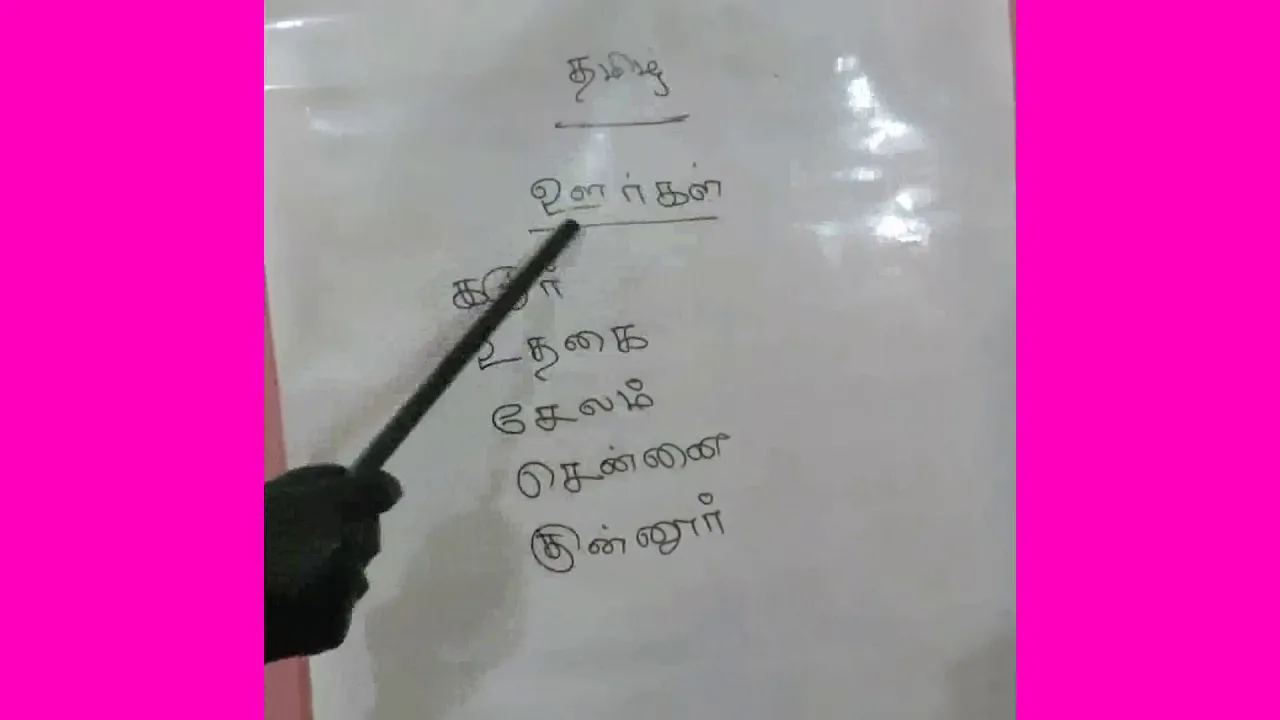 தமிழ்
ஊர்கள்
உதகை
சேலம்
சென்னை
குன்னூர்